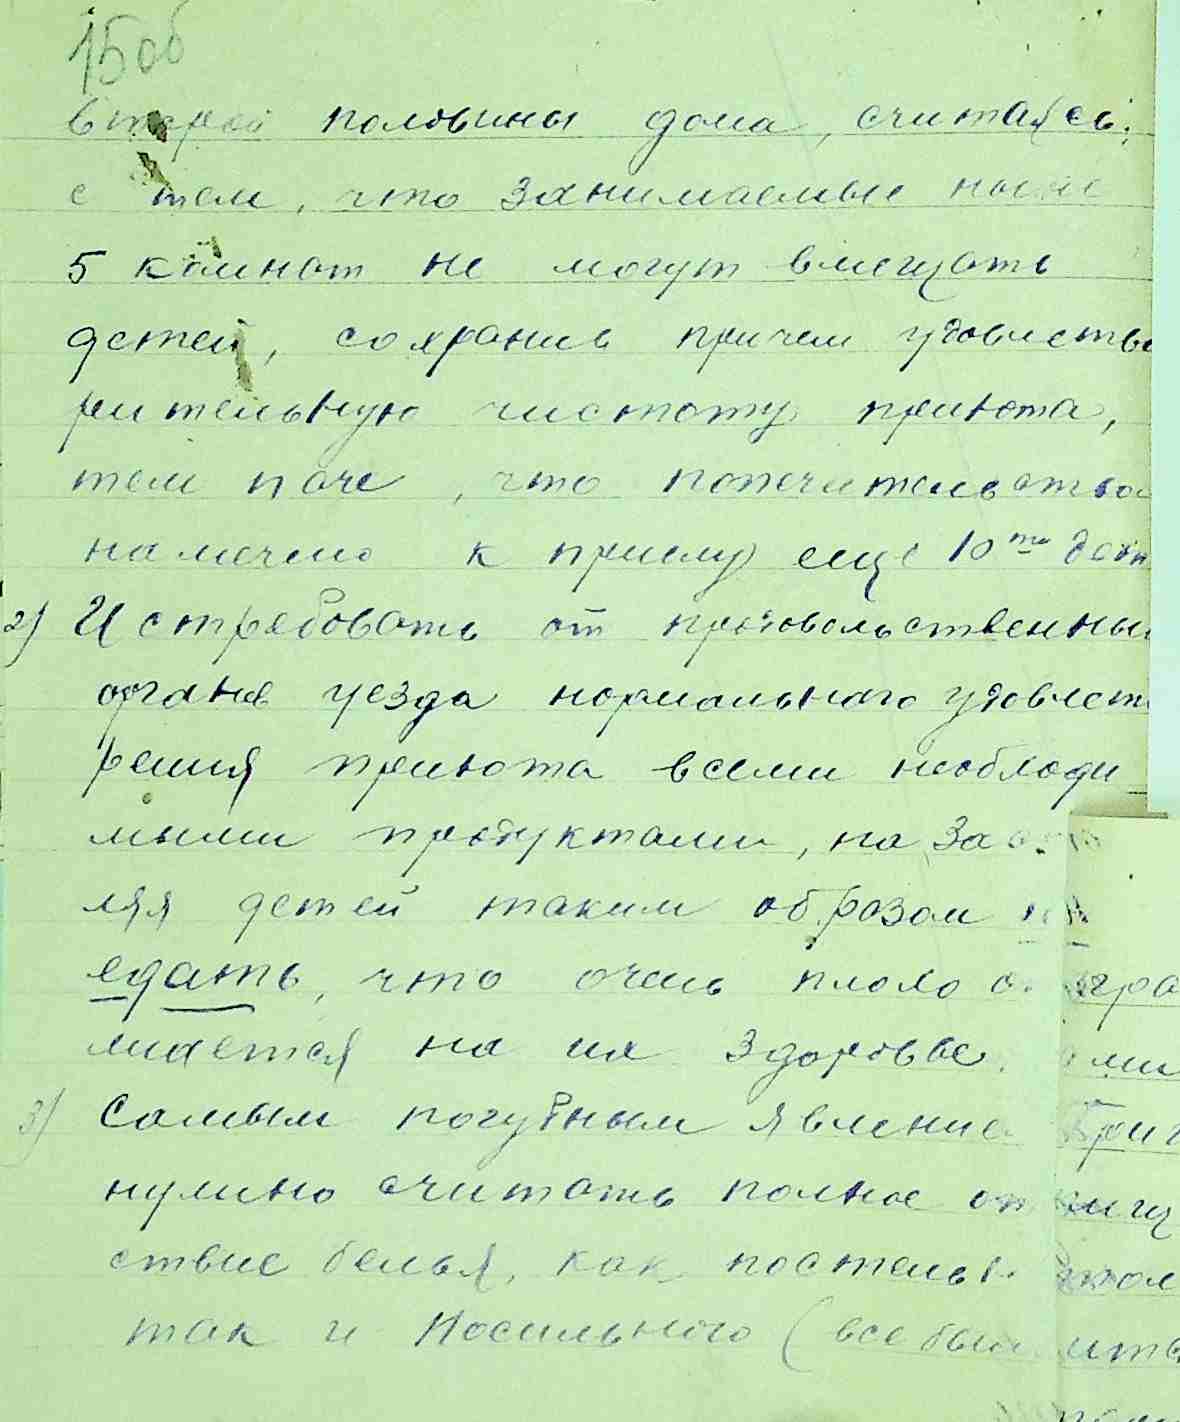 15 об
второй половины дома, считаясь
с тем, что занимаемые ныне
5 комнат не могут вмещать
детей, сохранив причем удовлетво
рительную чистоту приюта,
тем паче, что попечительством
намечено к приему еще 10ти дет
2) Истребовать от продовольственных
органов уезда нормального удовлетв
рения приюта всеми необходи
мыми продуктами, не застав
ляя детей таким образом не
едать, что очень плохо
мается на их здоровье.
3) Самым пагубным явление
нужно считать полное от
ствие белья, как постельн
так и носильного (все бы